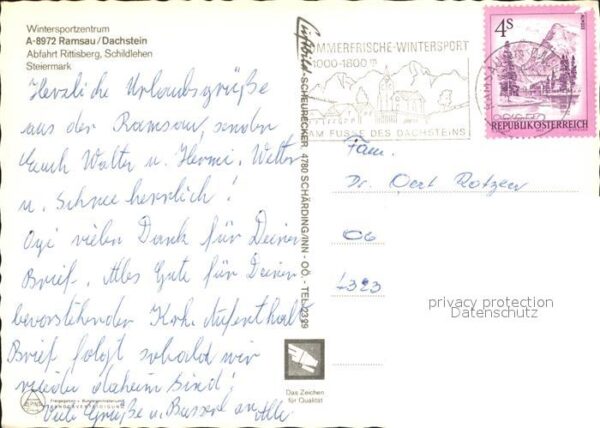 Wintersportzentrum
A-8972 Ramsau/Dachstein
Abfahrt Rittisberg, Schildlehen
Steiermark
Herzliche Urlaubsgrüße
aus der Ramsau, senden
Euch Walter u. Hermi. Wetter
u. Schnee herrlich!
Ogi vielen Dank für Deinen
Brief. Alles Gute für Deinen
bevorstehenden Krh. Aufenthalt.
Brief folgt sobald wir
wieder daheim sind!
Viele Grüße u. Busserl an Alle
Freigegeben v. Bundesministerium f.
LANDESVERTEIDIGUNG
Luftbild SCHEURECKER 4780 SCHÄRDING/INN - OÖ. - TEL. 2329
Das Zeichen
für Qualität
SOMMERFRISCHE-WINTERSPORT
1000-1800 m
AM FUSSE DES DACHSTEINS
4S
ALMSEE
REPUBLIK ÖSTERREICH
Fam.
Dr. Gert
4323
privacy protection
Datenschutz